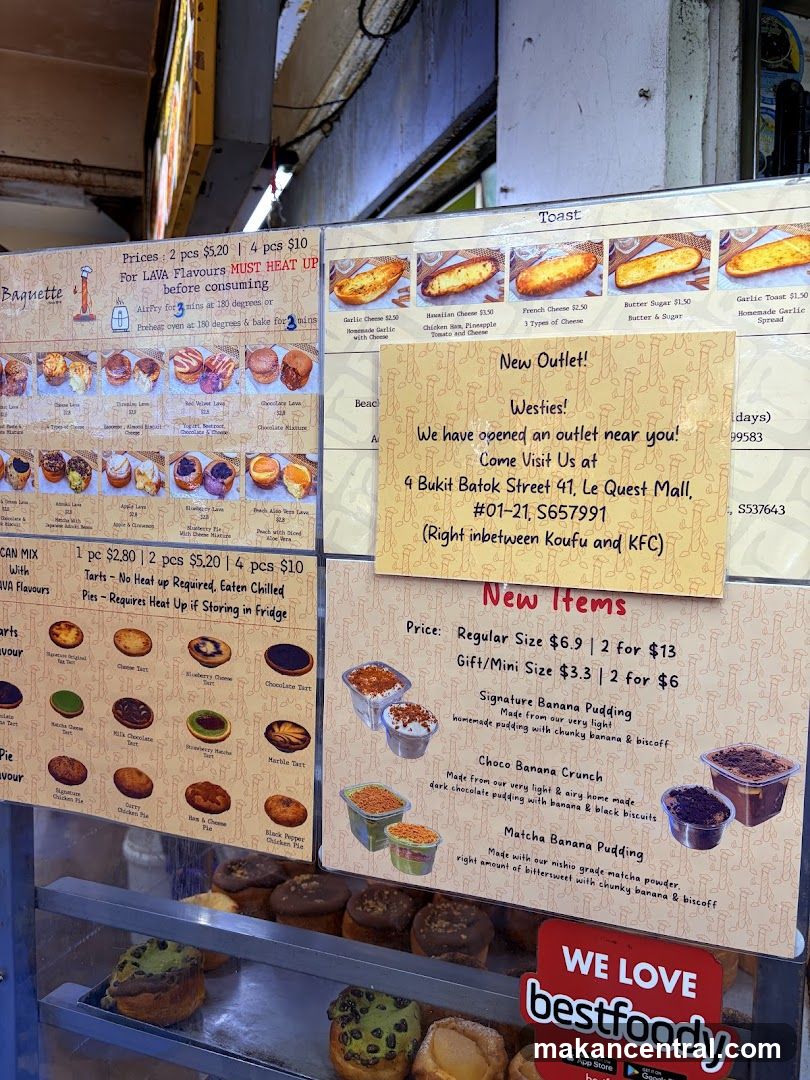 Baguette
Prices : 2 pcs $5.20 | 4 pcs $10
For LAVA Flavours MUST HEAT UP
before consuming
AirFry for 3 mins at 180 degrees or
Preheat oven at 180 degrees & bake for 3 mins
Cheese Lava
$2.8
4 Types of Cheese
Tiramisu Lava
$2.8
Red Velvet Lava
$2.8
Yogurt, Beetroot,
Chocolate & Cheese
Chocolate Lava
$2.8
Chocolate Mixture
Azuki Lava
$2.8
Matcha With
Japanese Adzuki Beans
Apple Lava
$2.8
Apple & Cinnamon
Blueberry Lava
$2.8
Blueberry Pie
With Cheese Mixture
Peach Aloe Vera Lava
$2.8
Peach with Diced
Aloe Vera
CAN MIX
With
LAVA Flavours
1 pc $2.80 | 2 pcs $5.20 | 4 pcs $10
Tarts - No Heat up Required, Eaten Chilled
Pies - Requires Heat Up if Storing in Fridge
Signature Original
Egg Tart
Cheese Tart
Blueberry Cheese
Tart
Chocolate Tart
Matcha Cheese
Tart
Milk Chocolate
Tart
Strawberry Matcha
Tart
Marble Tart
Pie
Signature
Chicken Pie
Curry
Chicken Pie
Ham & Cheese
Pie
Black Pepper
Chicken Pie
Toast
Garlic Cheese $2.50
Homemade Garlic
with Cheese
Hawaiian Cheese $3.50
Chicken Ham, Pineapple
Tomato and Cheese
French Cheese $2.50
3 Types of Cheese
Butter Sugar $1.50
Butter & Sugar
Garlic Toast $1.50
Homemade Garlic
Spread
New Outlet!
Westies!
We have opened an outlet near you!
Come Visit Us at
4 Bukit Batok Street 41, Le Quest Mall,
#01-21, S657991
(Right inbetween Koufu and KFC)
S537643
New Items
Price: Regular Size $6.9 | 2 for $13
Gift/Mini Size $3.3 | 2 for $6
Signature Banana Pudding
Made from our very light
homemade pudding with chunky banana & biscoff
Choco Banana Crunch
Made from our very light & airy home made
dark chocolate pudding with banana & black biscuits
Matcha Banana Pudding
Made with our nishio grade matcha powder,
right amount of bittersweet with chunky banana & biscoff
WE LOVE
bestfoody
App Store
GET IT ON
makancentral.com